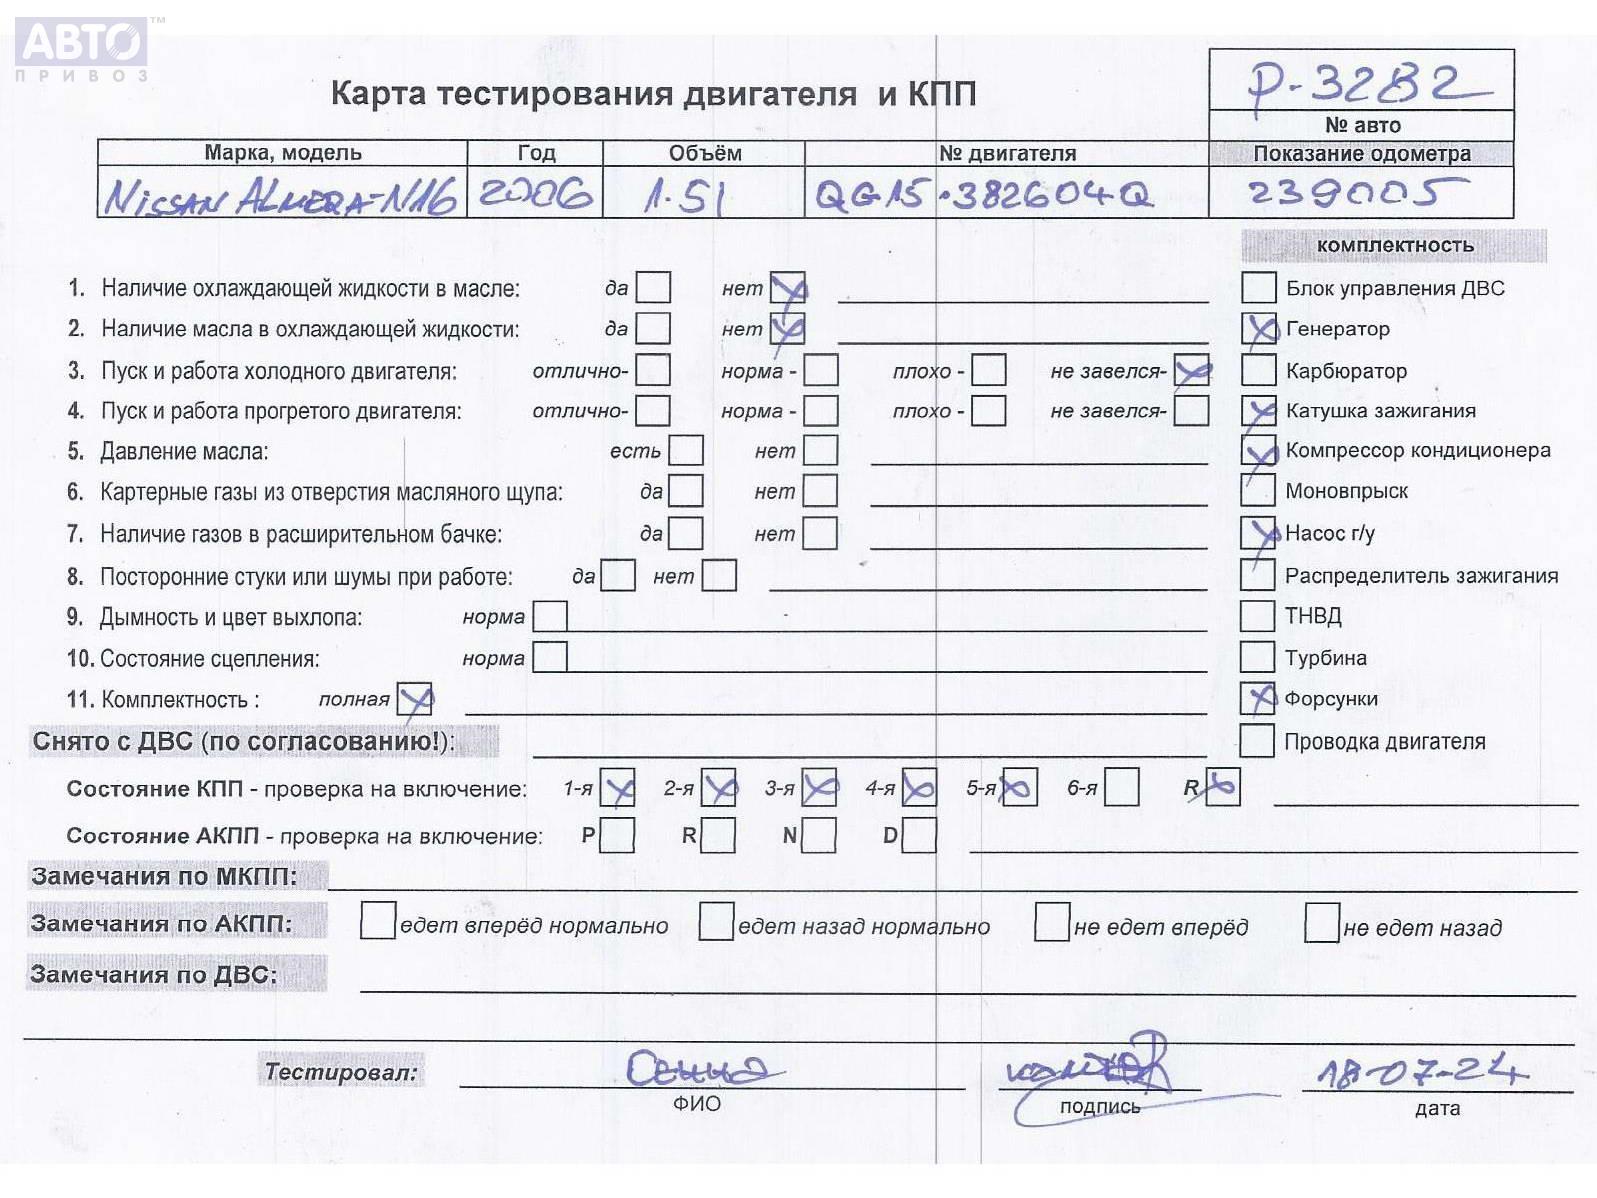 АВТО™
ПРИВОЗ
Карта тестирования двигателя и КПП
P-3282
№ авто
Марка, модель Год Объём № двигателя Показание одометра
Nissan Almera-N16 2006 1.5i QG15.382604Q 239005
комплектность
1. Наличие охлаждающей жидкости в масле: да нет Блок управления ДВС
2. Наличие масла в охлаждающей жидкости: да нет Генератор
3. Пуск и работа холодного двигателя: отлично- норма - плохо - не завелся- Карбюратор
4. Пуск и работа прогретого двигателя: отлично- норма - плохо - не завелся- Катушка зажигания
5. Давление масла: есть нет Компрессор кондиционера
6. Картерные газы из отверстия масляного щупа: да нет Моновпрыск
7. Наличие газов в расширительном бачке: да нет Насос г/у
8. Посторонние стуки или шумы при работе: да нет Распределитель зажигания
9. Дымность и цвет выхлопа: норма ТНВД
10. Состояние сцепления: норма Турбина
11. Комплектность : полная Форсунки
Снято с ДВС (по согласованию!): Проводка двигателя
Состояние КПП - проверка на включение: 1-я 2-я 3-я 4-я 5-я 6-я R
Состояние АКПП - проверка на включение: P R N D
Замечания по МКПП:
Замечания по АКПП: едет вперёд нормально едет назад нормально не едет вперёд не едет назад
Замечания по ДВС:
Тестировал: 18-07-24
ФИО подпись дата